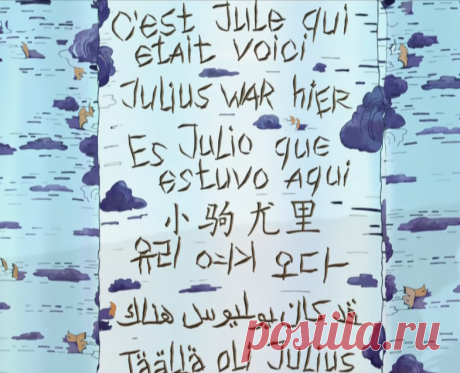 C'EST JULE qui
ETAIT VOICI
JULIUS WAR hiER
ES JULIO que
ESTUVO AQUi
小驹尤里
유리 여기 오다
قد كان يوليوس هناك
TÄÄLLÄ OLI JULIUS
postila.ru